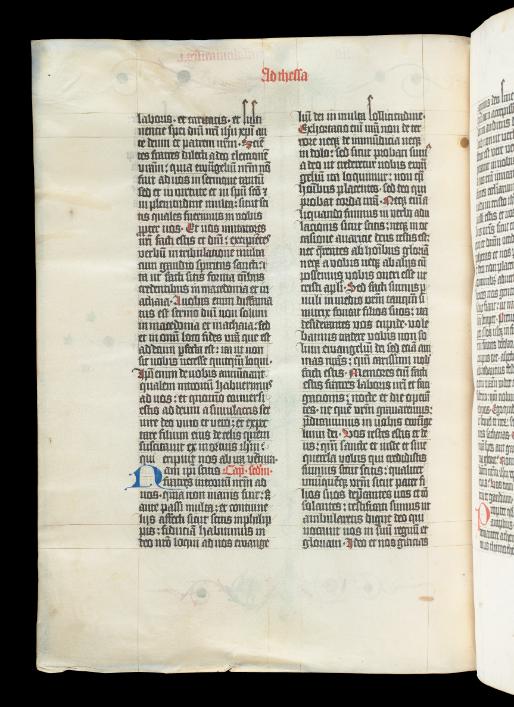 Ad thessa
laboris · et caritatis · et susti
nentie spei dñi nr̄i ih̄u xp̄i an̄
te deum et patrem nr̄m · Sciē
tes fratres dilecti a deo electionē
vrām : quia ewāgeliū nr̄m nō
fuit ad vos in sermone tantū
sed et in virtute et in sp̄u scō ⁊
in plenitudine multa : sicut sci
tis quales fuerimus in vobis
ppter vos · Et vos imitatores
nr̄i facti estis et dn̄i : excipiētes
verbū in tribulatione multa
cum gaudio spiritus sancti : i
ta ut facti sitis forma omībus
credentibus in macedonia et in
achaia · A vobis enim diffama
tus est sermo dn̄i non solum
in macedonia et in achaia : sed
et in omni loco fides vrā que est
ad deum pfecta est : ita ut non
sit nobis necesse quicq̄m loqui ·
Ip̄i enim de nobis annuntiant
qualem introitū habuerimus
ad vos : et quomō conuersi
estis ad deum a simulacris ser
uire deo viuo et vero : et expec
tare filium eius de celis quem
suscitauit ex mortuis ihm̄ :
qui eripuit nos ab ira ventu
ra · Nam ipsi scitis · Cap̄ · scdm̄ ·
fratres introitū nr̄m ad
vos · quia non inanis fuit : s̄
ante passi multa : et contume
lijs affecti sicut scitis in philip
pis : fiduciā habuimus in
deo nr̄o loqui ad vos ewange
liū dei in multa sollicitudine ·
Exhortatio eni nr̄a non de er
rore neq̄ de inmūdicia neq̄
in dolo : sed sicut probati sum̄
a deo ut crederetur nobis ewā
gelium ita loquimur : non q̄si
hoībus placentes · sed deo qui
probat corda nr̄a · Neq̄ enī a
liquando fuimus in verbo adu
lationis sicut scitis : neq̄ in oc
casione auaricie deus testis est :
nec q̄rentes ab hoībus gloriā
neq̄ a vobis neq̄ ab alijs cū
possemus vobis oneri esse ut
cristi apl̄i · Sed facti sumus p
uuli in medio vr̄m tamq̄m si
nutrix foueat filios suos : ita
desiderantes vos cupide · vole
bamus tradere vobis non so
lum ewangelium dei sed etiā ani
mas nr̄as : qm̄ carissimi nob̄
facti estis · Memores enī facti
estis fratres laboris nr̄i et fati
gationis : nocte et die operā
tes · ne quē vr̄m grauaremus :
p̄dicauimus in vobis ewāge
lium dei · Vos testes estis et de
us : qm̄ sancte et iuste et sine
querela vobis qui credidistis
fuimus sicut scitis : qualiter
unūquēq̄ vr̄m sicut pater fi
lios suos deprecantes vos et cō
solantes : testificati sumus ut
ambularetis digne deo qui
vocauit vos in suū regnū et
gloriam · Ideo et nos gracias